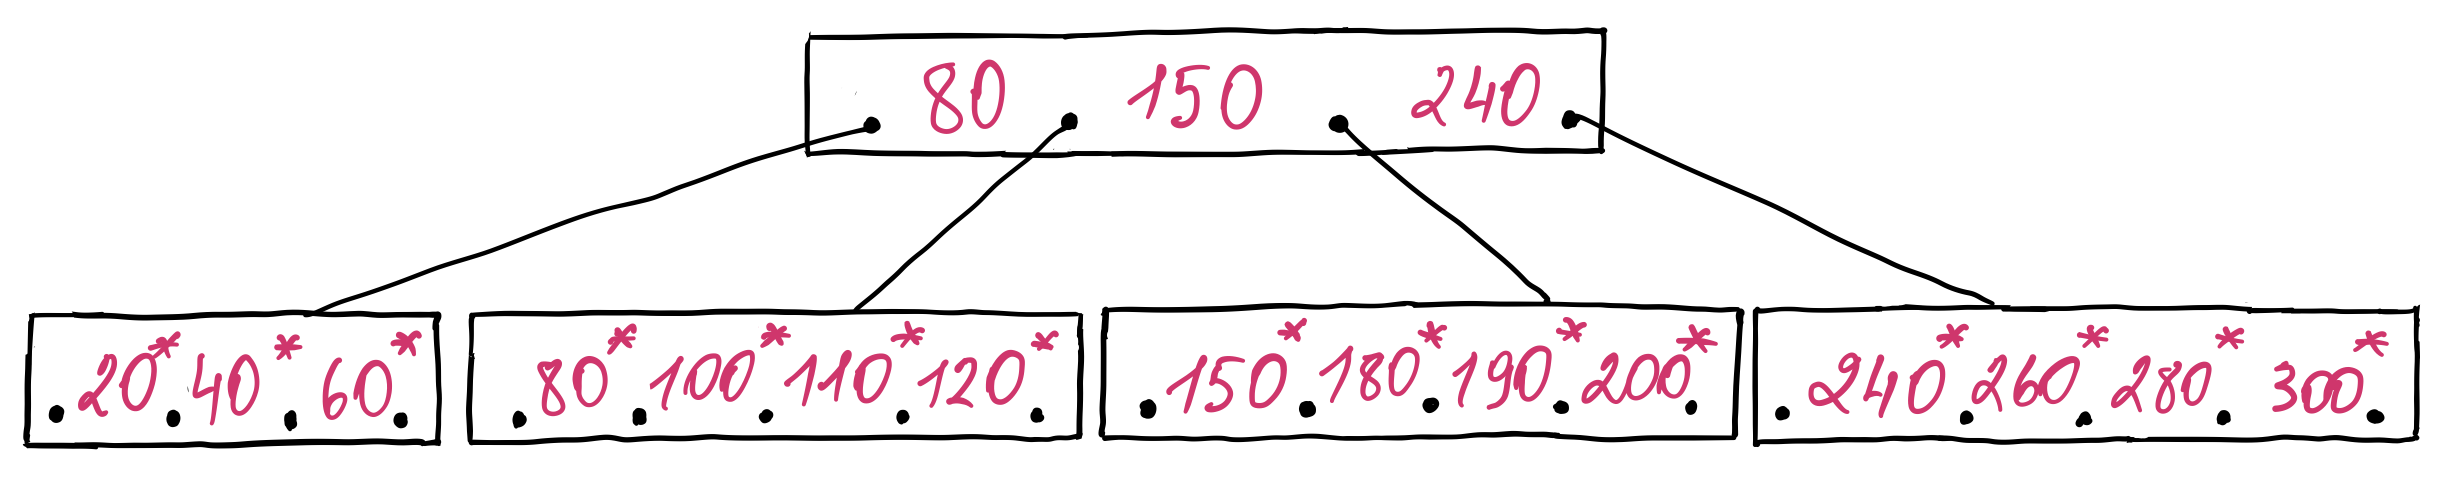 80 150 240
20* 40* 60* 80* 100* 110* 120* 150* 180* 190* 200* 240* 260* 280* 300*